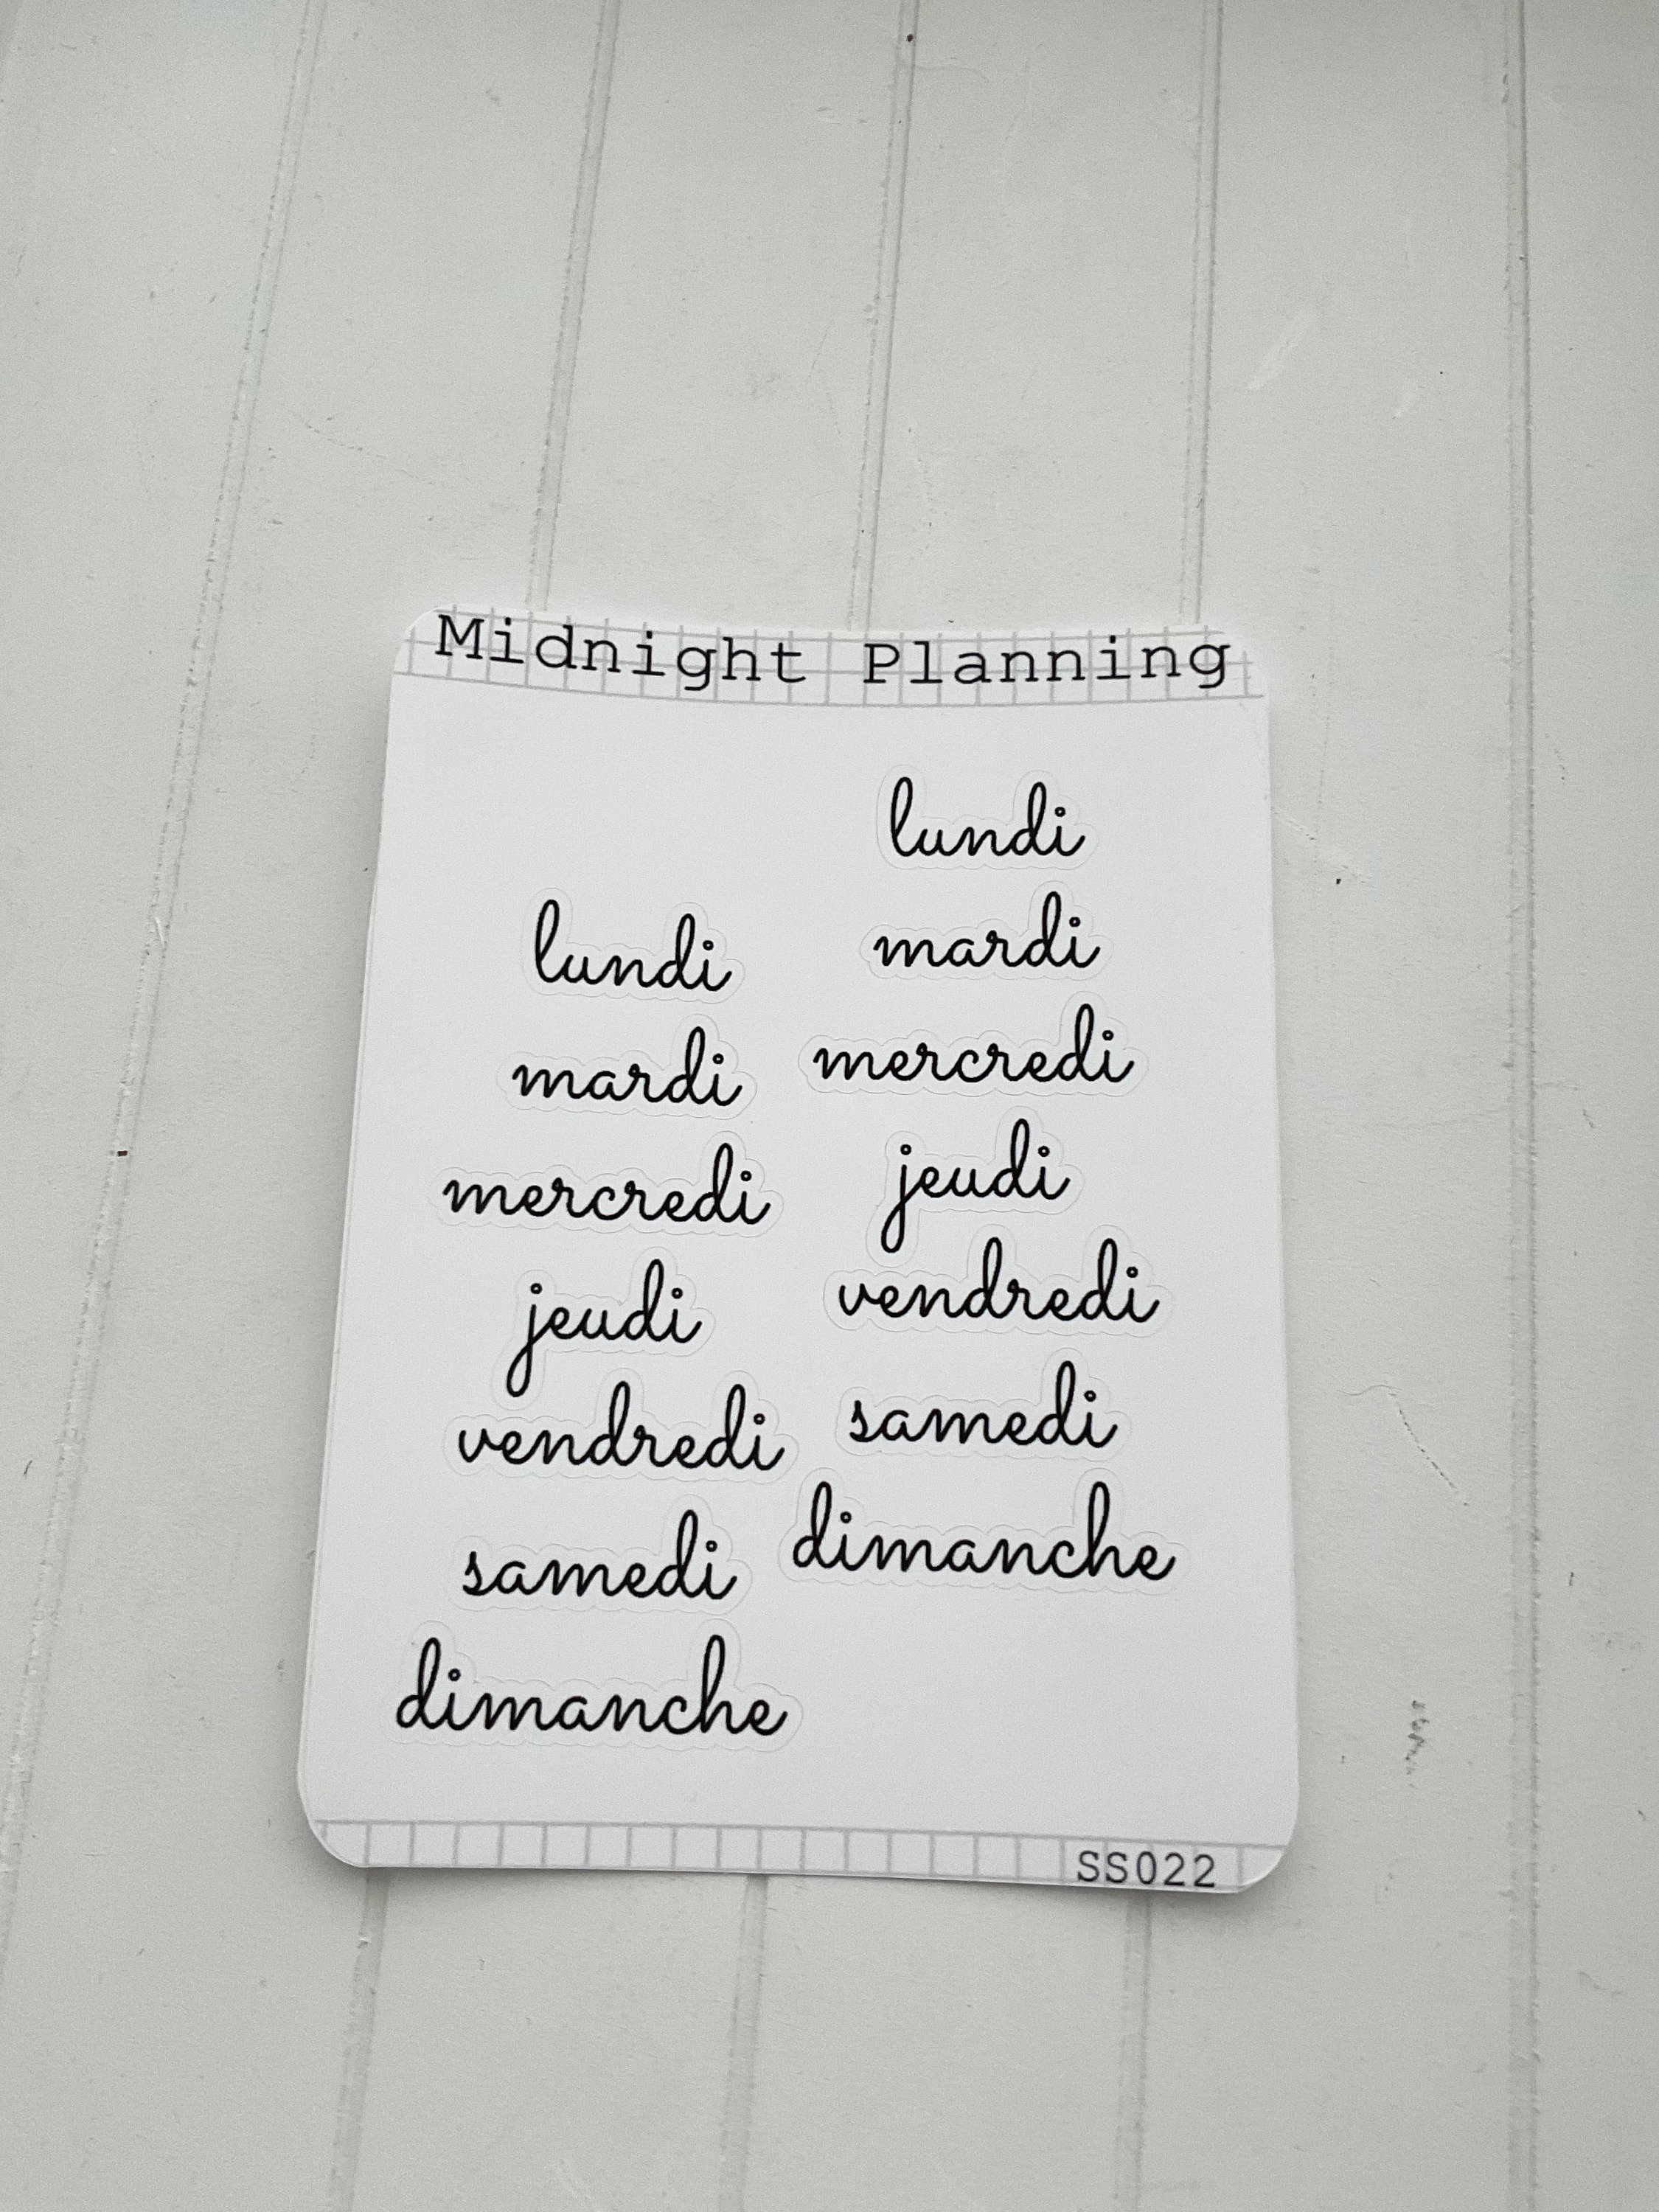 Midnight Planning
lundi
mardi
mercredi
jeudi
vendredi
samedi
dimanche
lundi
mardi
mercredi
jeudi
vendredi
samedi
dimanche
SS022